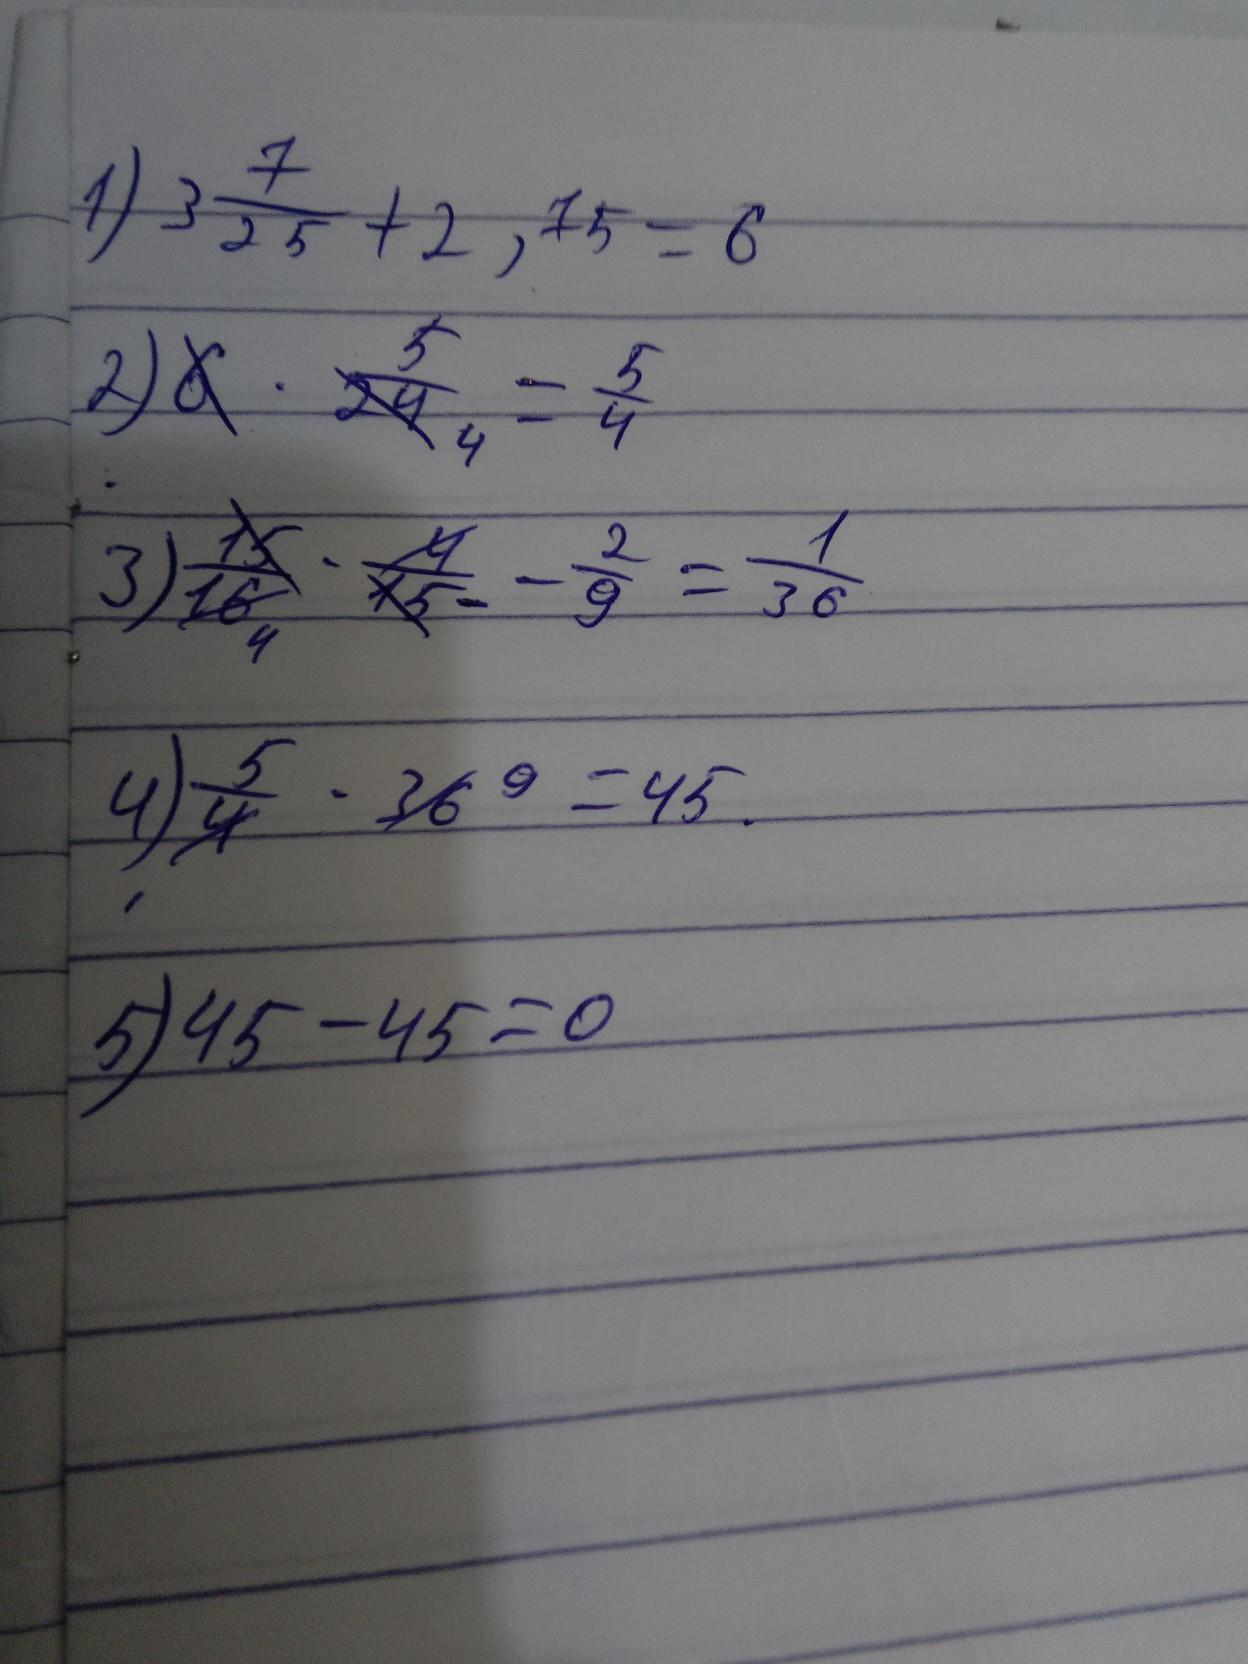 1) 3 7/25 + 2,75 = 6
2) 6 · 5/24 4 = 5/4
3) 15/16 4 · 4/15 - 2/9 = 1/36
4) 5/4 · 36 9 = 45.
5) 45 - 45 = 0